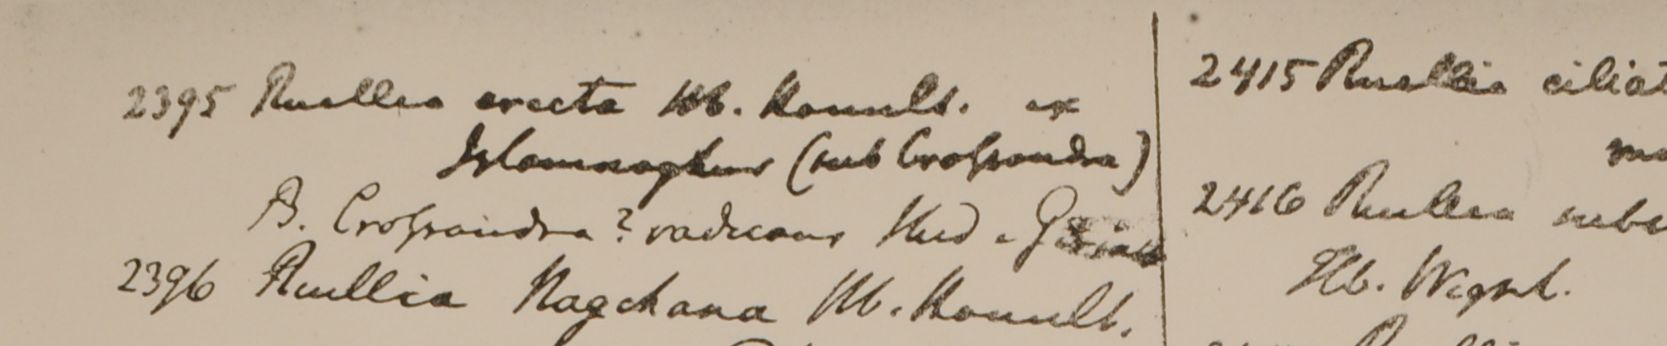 2395 Ruellia erecta Hb. Hamilt. ex
(sub Crossandra)
B. Crossandra ? radicans Hb.
2396 Ruellia Nagchana Hb. Hamilt.
2415 Ruellia ciliat
2416 Ruellia sube
Hb. Wight.